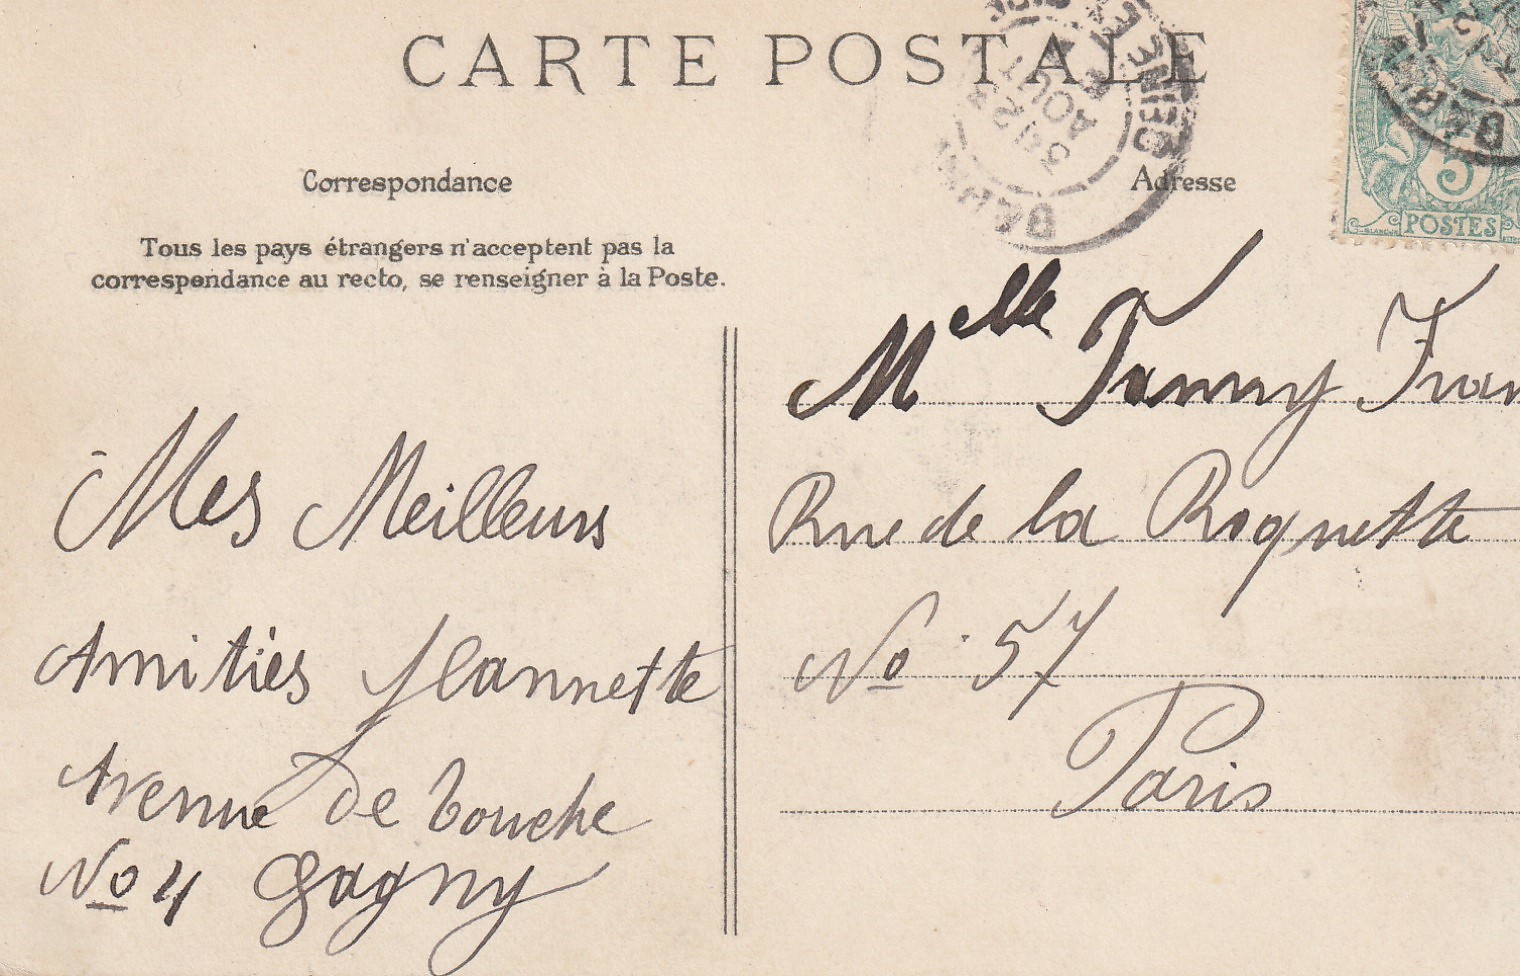 CARTE POSTALE
Correspondance
Tous les pays étrangers n'acceptent pas la
correspondance au recto, se renseigner à la Poste.
Mes Meilleurs
Amitiés Jeannette
Avenue de
No 4 Gagny
Adresse
Melle Fanny
Rue de la Roquette
No 57
Paris
5
POSTES
AOUT
SEINE ET